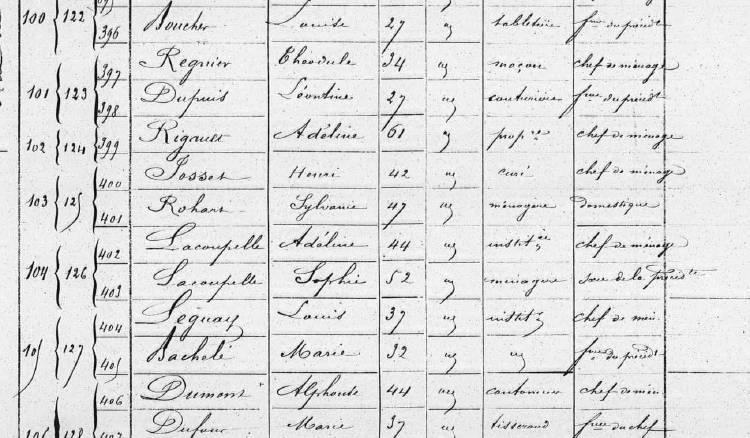 100 122 396 Boucher Louise 27 id tabletière fme du précédt
397 Regnier Théodule 34 id maçon chef de ménage
101 123 398 Dupuis Léontine 27 id couturière fme du précédt
102 124 399 Rigault Adéline 61 id propre chef de ménage
400 Josset Henri 42 id curé chef de ménage
103 125 401 Rohart Sylvanie 47 id ménagère domestique
402 Lacoupelle Adéline 44 id institce chef de ménage
104 126 403 Lacoupelle Sophie 52 id ménagère sœur de la précédte
404 Leguay Louis 37 id institr chef de mén.
105 127 405 Bachelé Marie 32 id id fme du précédt
406 Dumont Alphonse 44 id cantonnier chef de mén.
106 128 407 Dufour Marie 37 id tisserand fme du chef